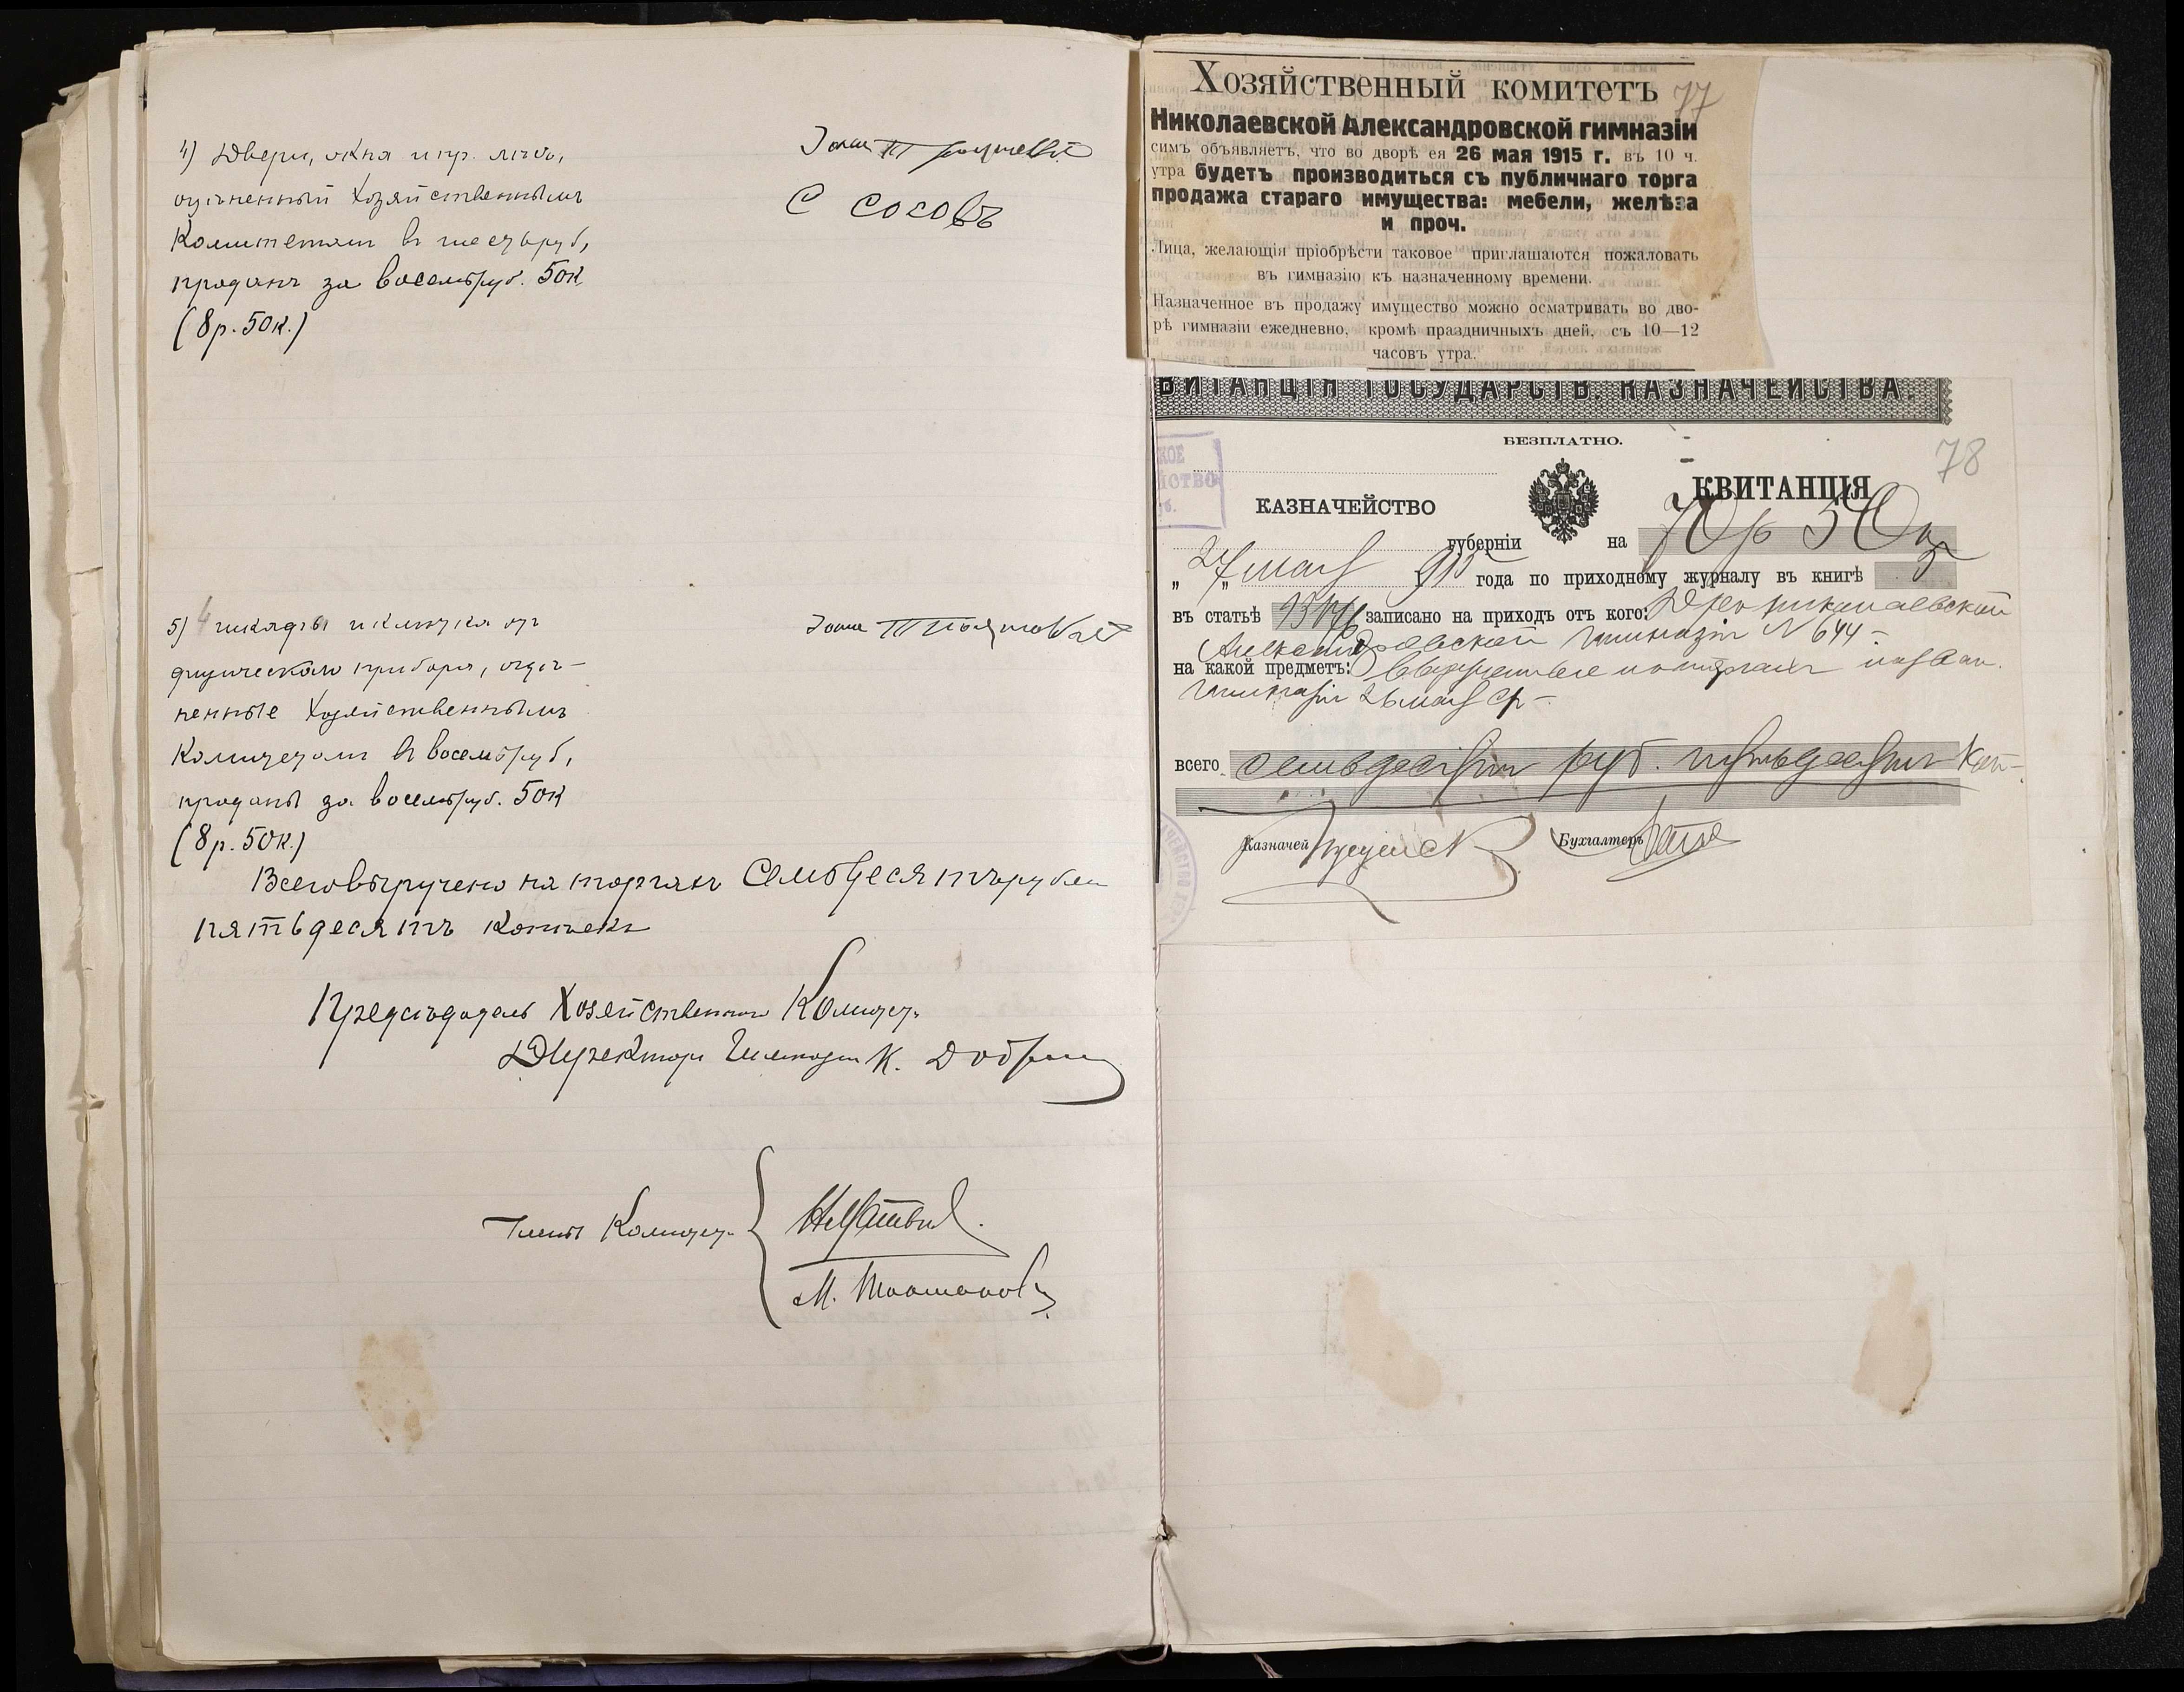 4) Двери, окна и пр. лѣсъ,
оцѣненный Хозяйственнымъ
Комитетомъ въ шесть руб,
проданъ за восемь руб. 50к
(8р. 50к.)
С Сосовъ
5) 4 шкафа и клѣтка отъ
физическаго прибора, оцѣ-
ненные Хозяйственнымъ
Комитетомъ въ восемь руб,
проданы за восемь руб. 50к
(8р. 50к.)
Всего выручено на торгахъ Семьдесятъ рублей
пятьдесятъ копѣекъ
Предсѣдатель Хозяйственнаго Комитета
Директоръ Гимназіи К.
Члены Комитета
М.
Хозяйственный комитетъ 77
Николаевской Александровской гимназіи
симъ объявляетъ, что во дворѣ ея 26 мая 1915 г. въ 10 ч.
утра будетъ производиться съ публичнаго торга
продажа стараго имущества: мебели, желѣза
и проч.
Лица, желающія пріобрѣсти таковое приглашаются пожаловать
въ гимназію къ назначенному времени.
Назначенное въ продажу имущество можно осматривать во дво-
рѣ гимназіи ежедневно, кромѣ праздничныхъ дней, съ 10—12
часовъ утра.
ВИТАНЦІЯ ГОСУДАРСТВ. КАЗНАЧЕЙСТВА.
БЕЗПЛАТНО.
78
КАЗНАЧЕЙСТВО
КВИТАНЦІЯ
губерніи на 70р 50к
„27„ мая 915 года по приходному журналу въ книгѣ 5
въ статьѣ записано на приходъ отъ кого: Николаевской
Александровской гимназіи N 644 -
на какой предметъ: вырученные
гимназіи 26 мая с/г -
всего семьдесятъ руб. пятьдесятъ коп-
Казначей
Бухгалтеръ